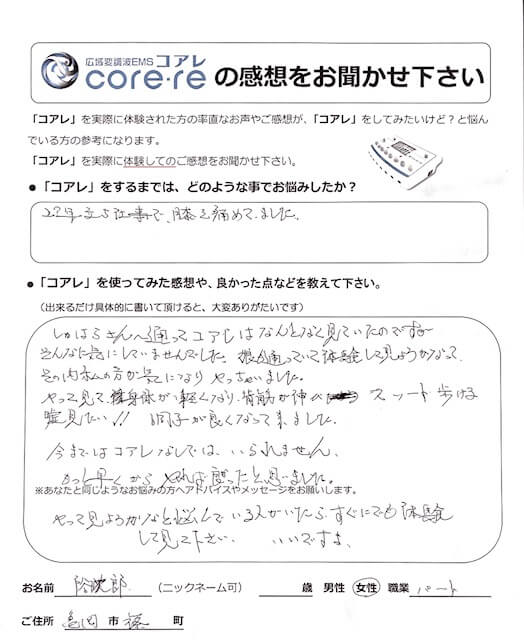 広域変調波EMS コアレ
core·re の感想をお聞かせ下さい
「コアレ」を実際に体験された方の率直なお声やご感想が、「コアレ」をしてみたいけど？と悩ん
でいる方の参考になります。
「コアレ」を実際に体験してのご感想をお聞かせ下さい。
● 「コアレ」をするまでは、どのような事でお悩みしたか？
立ち仕事で、膝を痛めてました。
● 「コアレ」を使ってみた感想や、良かった点などを教えて下さい。
（出来るだけ具体的に書いて頂けると、大変ありがたいです）
さんへ通ってコアレはなんとなく見ていたのですが
そんなに気にしていませんでした。娘も通っていて体験して見ようかなって
その内私の方が気になりやっちゃいました。
やって見て、身体が軽くなり、背筋が伸び スット歩ける
嘘見たい!! 調子が良くなって来ました。
今まではコアレなしでは、いられません、
もっと早くから やれば良かったと思いました。
※あなたと同じようなお悩みの方へアドバイスやメッセージをお願いします。
やって見ようかなと悩んでいる人がいたら、すぐにでも体験
して見て下さい いいですよ、
お名前 （ニックネーム可） 歳 男性 女性 職業 パート
ご住所 亀岡 市 篠 町